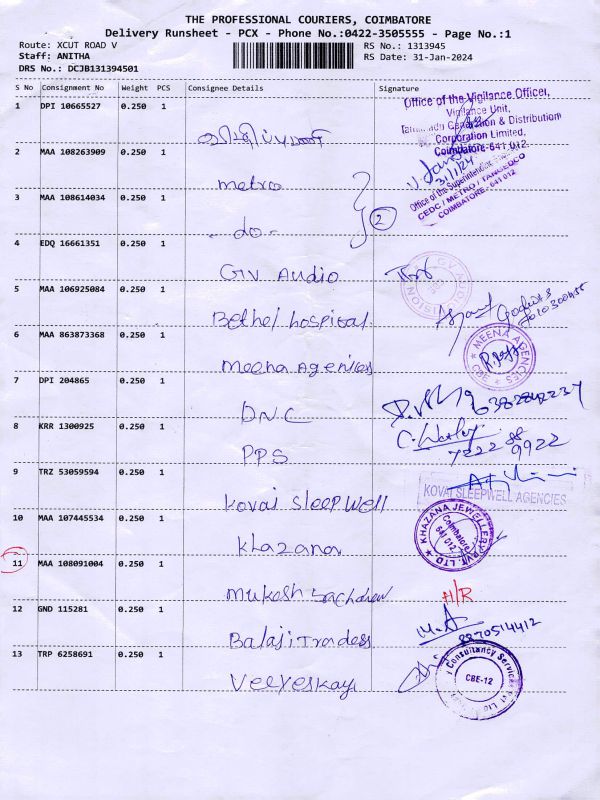 THE PROFESSIONAL COURIERS, COIMBATORE
Delivery Runsheet - PCX - Phone No.:0422-3505555 - Page No.:1
Route: XCUT ROAD V
RS No.: 1313945
Staff: ANITHA
RS Date: 31-Jan-2024
DRS No.: DCJB131394501
S No Consignment No Weight PCS Consignee Details Signature
1 DPI 10665527 0.250 1
Office of the Vigilance Officer,
Vigilance Unit,
Tamilnadu Generation & Distribution
Corporation Limited,
Coimbatore-641 012.
2 MAA 108263909 0.250 1
metro
31/1/24
Office of the Superintending
CEDC / METRO / TANGEDCO
COIMBATORE-641 012
3 MAA 108614034 0.250 1
-do-
2
4 EDQ 16661351 0.250 1
GV Audio
GV AUDIO
5 MAA 106925084 0.250 1
Bethel hospital
6 MAA 863873368 0.250 1
Meena Agencies
MEENA AGENCIES
CBE
7 DPI 204865 0.250 1
DNC
6382842237
8 KRR 1300925 0.250 1
PPS
C. Wesley
7222 88
9922
9 TRZ 53059594 0.250 1
Kovai Sleepwell
KOVAI SLEEPWELL AGENCIES
10 MAA 107445534 0.250 1
Khazana
KHAZANA JEWELLERY PVT. LTD.
Coimbatore
641 012
11 MAA 108091004 0.250 1
Mukesh Sachdew
H/R
12 GND 115281 0.250 1
Balaji Tradess
M.A
8870514412
13 TRP 6258691 0.250 1
Veeyeskay
Consultancy Services Pvt Ltd
CBE-12